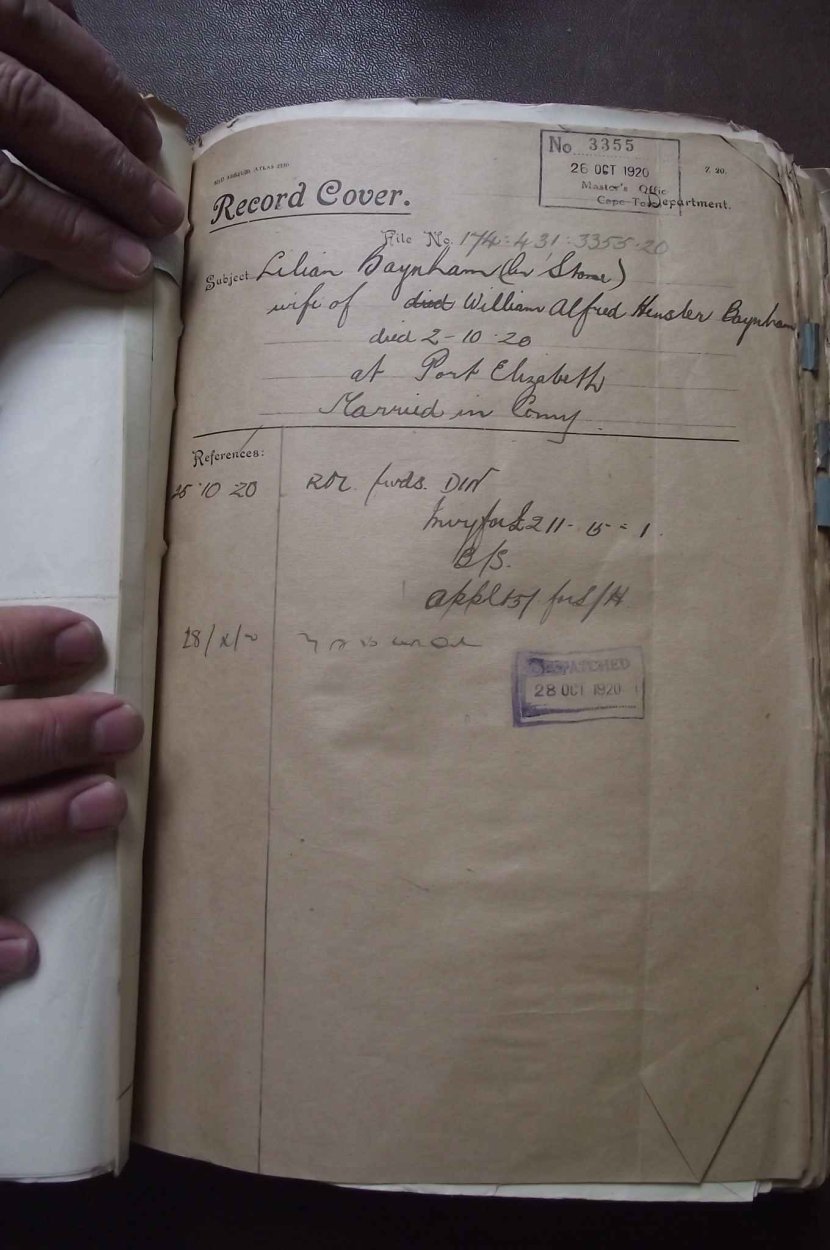 No 3355
26 OCT 1920
Master's Offic
Cape To Department.
Z. 20.
Record Cover.
File No. 174:431:3355·20
Subject Lilian Baynham (bn Stone)
wife of died William Alfred Hensler Baynham
died 2-10-20
at Port Elizabeth
Married in Comy
References:
25·10 20 fwds. DIN
Invy for £211-15=1.
B/S.
for L/H
DESPATCHED
28 OCT 1920